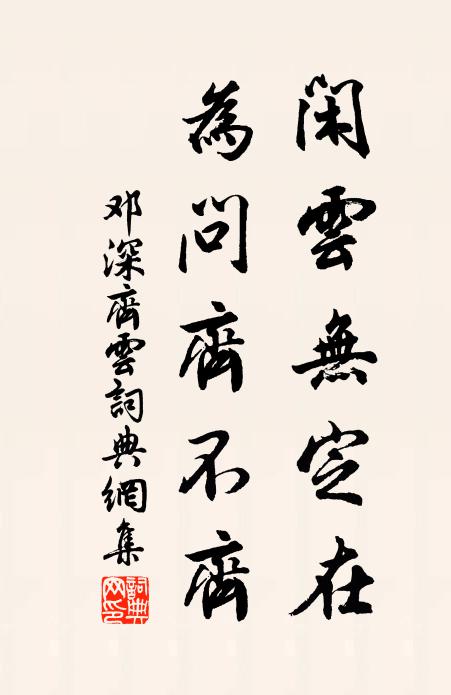 閑雲無定在
為問齊不齊
邓深齊雲詞典網集
詞典網印